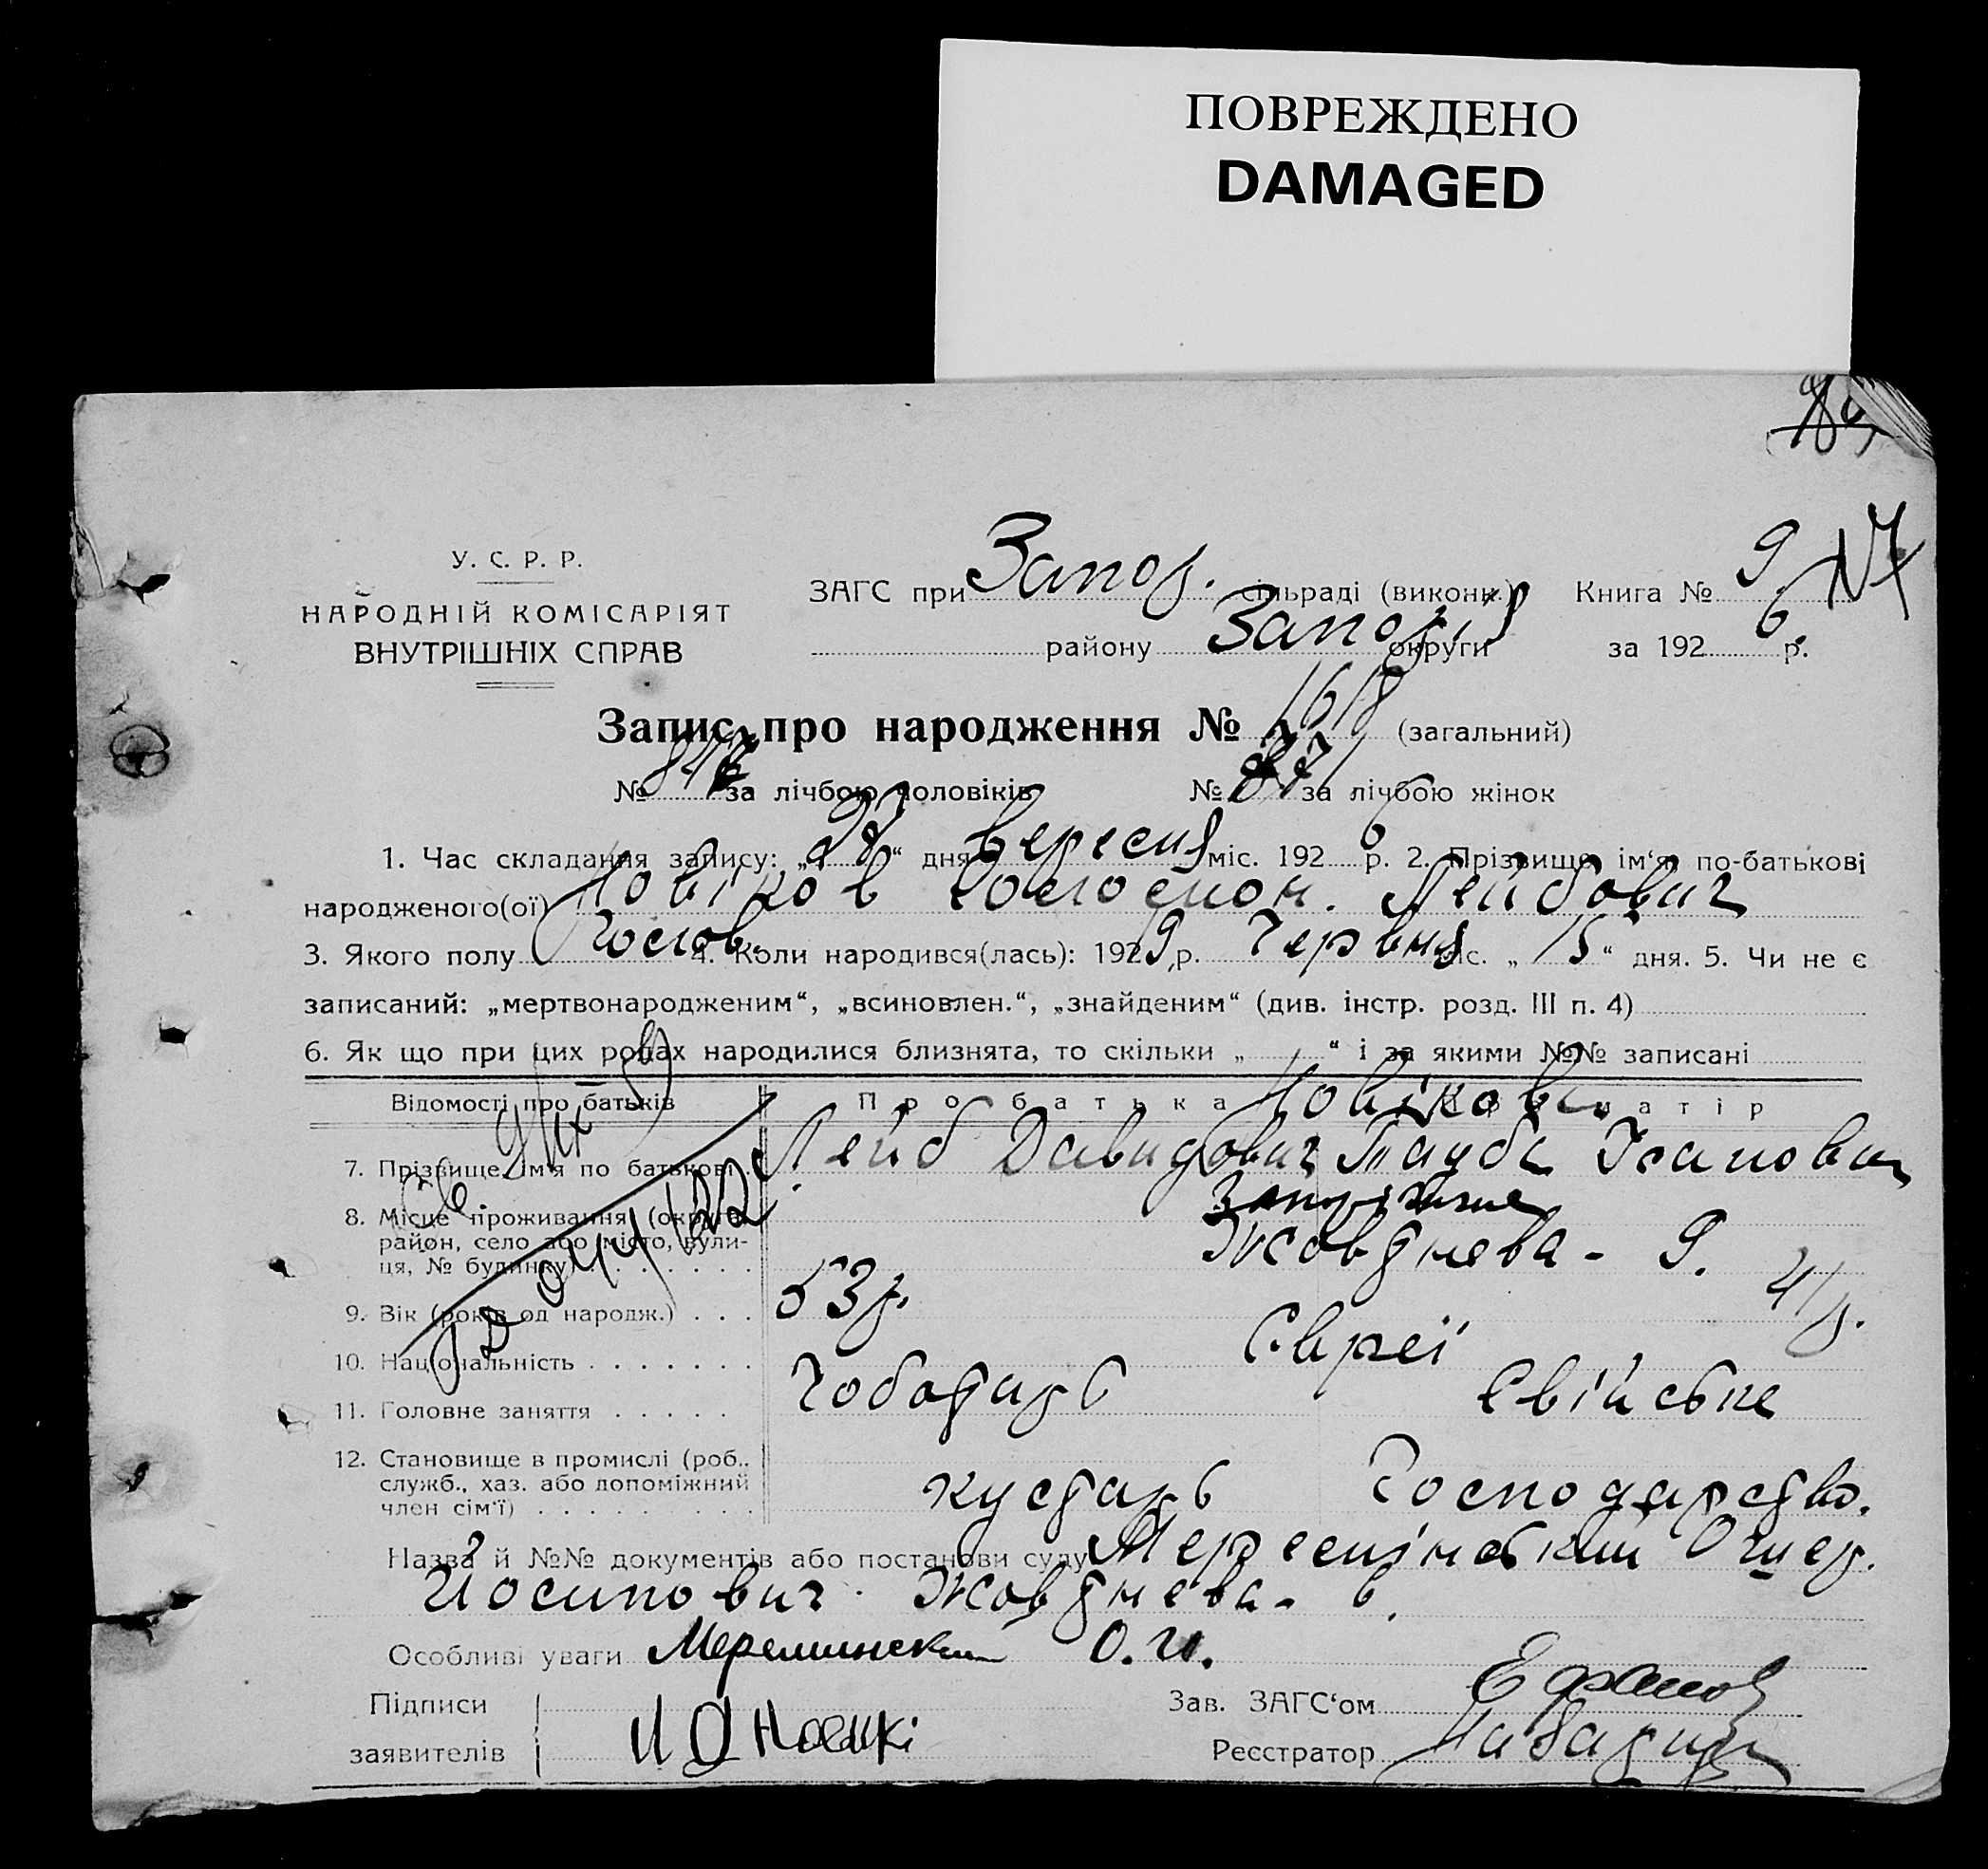 ПОВРЕЖДЕНО
DAMAGED
У. С. Р. Р.
НАРОДНІЙ КОМІСАРІЯТ
ВНУТРІШНІХ СПРАВ
ЗАГС при Запор. сільраді (викони.)
району Запоріз округи
Книга № 9
за 1926 р.
Запис про народження № 1618 (загальний)
№ за лічбою чоловіків № за лічбою жінок
1. Час складання запису: „27“ дня Вересня міс. 1926 р. 2. Прізвище, ім‘я, по-батькові
народженого(ої) Новіков Лейбович
3. Якого полу Чолов. 4. Коли народився(лась): 1929 р. Червня міс. „15“ дня. 5. Чи не є
записаний: „мертвонародженим“, „всиновлен.“, „знайденим“ (див. інстр. розд. III п. 4)
6. Як що при цих родах народилися близнята, то скільки „ “ і за якими №№ записані
Відомості про батьків Про батька Про матір
Новікови
7. Прізвище, ім‘я по батькові Лейб Давидович Тауба Ісаповна
8. Місце проживання (округа, район, село або місто, вулиця, № будинку) Запоріжжя
Жовтнева - 9.
9. Вік (років од народж.) 53 р. 41 р.
10. Національність Євреї
11. Головне заняття Чоботарь Свійське
12. Становище в промислі (роб., служб., хаз. або допоміжний член сім‘ї) кустарь Господарство.
Назва й №№ документів або постанови суду Меремінський Ошер.
Йосипович. Жовтнева - 6.
Особливі уваги Мереминский О. И.
Підписи
заявителів
Зав. ЗАГС‘ом
Реєстратор